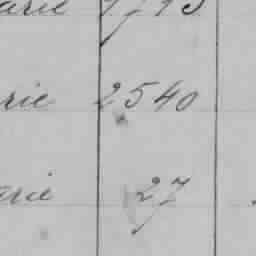 arie
rie 2540
arie 27